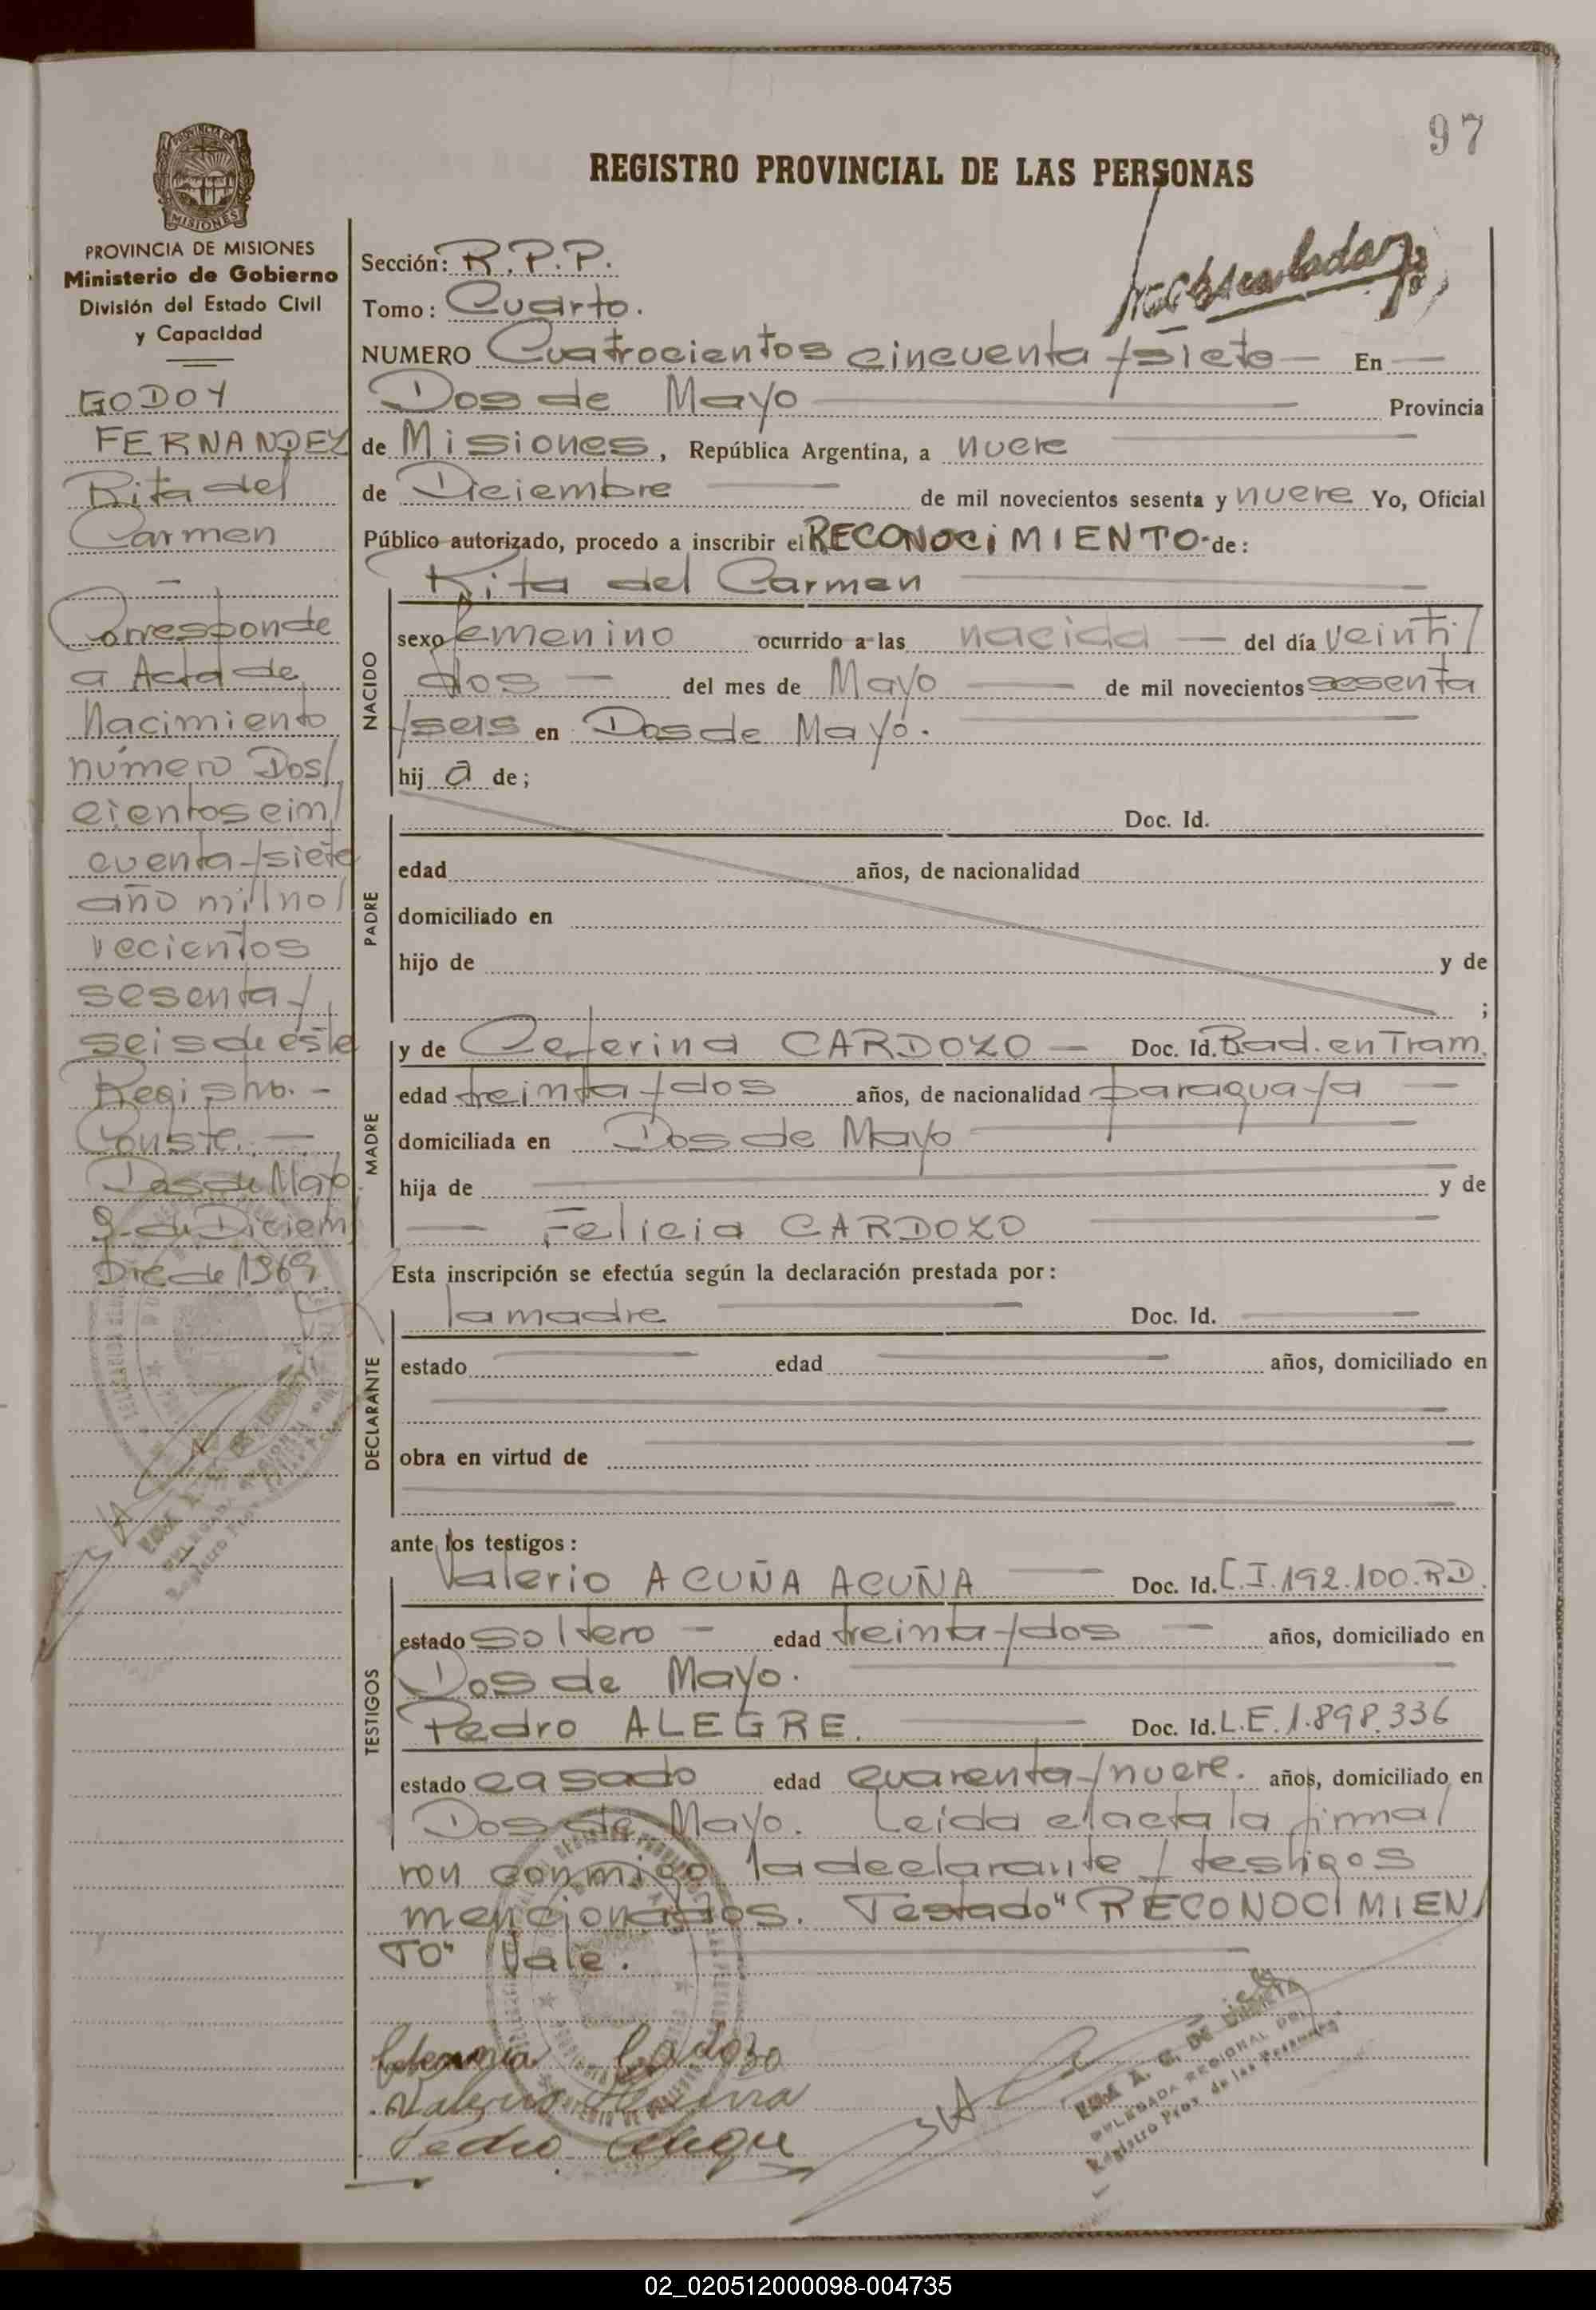 97
REGISTRO PROVINCIAL DE LAS PERSONAS
PROVINCIA DE MISIONES
Ministerio de Gobierno
División del Estado Civil
y Capacidad
GODOY
FERNANDEZ
Rita del
Carmen
Corresponde
a Acta de
Nacimiento
número Dos/
cientos cin/
cuenta y siete
año mil no/
vecientos
sesenta y
seis de este
Registro. -
Conste. -
Dos de Mayo
9 de Diciem/
bre de 1969.
Sección: R.P.P.
Tomo: Cuarto.
NUMERO Cuatrocientos cincuenta y siete — En —
Dos de Mayo — Provincia
de Misiones, República Argentina, a nueve
de Diciembre — de mil novecientos sesenta y nueve Yo, Oficial
Público autorizado, procedo a inscribir el RECONOCIMIENTO- de:
Rita del Carmen
NACIDO
sexo femenino ocurrido a las nacida — del día veinti/
dos — del mes de Mayo — de mil novecientos sesenta
y seis en Dos de Mayo.
hij a de;
PADRE
Doc. Id.
edad años, de nacionalidad
domiciliado en
hijo de y de
;
MADRE
y de Ceferina CARDOZO — Doc. Id. Rad. en Tram.
edad treinta y dos años, de nacionalidad paraguaya —
domiciliada en Dos de Mayo
hija de — y de
— Felicia CARDOZO
Esta inscripción se efectúa según la declaración prestada por:
DECLARANTE
la madre — Doc. Id. —
estado — edad — años, domiciliado en
obra en virtud de —
ante los testigos:
TESTIGOS
Valerio ACUÑA ACUÑA — Doc. Id. C.I. 192.100. R.D.
estado soltero — edad treinta y dos — años, domiciliado en
Dos de Mayo.
Pedro ALEGRE. — Doc. Id. L.E. 1.898.336
estado casado edad cuarenta y nueve. años, domiciliado en
Dos de Mayo. Leída el acta la firma/
ron conmigo la declarante y testigos
mencionados. Testado "RECONOCIMIEN/
TO" Vale.
Cardozo
Valerio Acuna
Pedro Alegre
DELEGADA REGIONAL DEL
Registro Prov. de las Personas
02_020512000098-004735